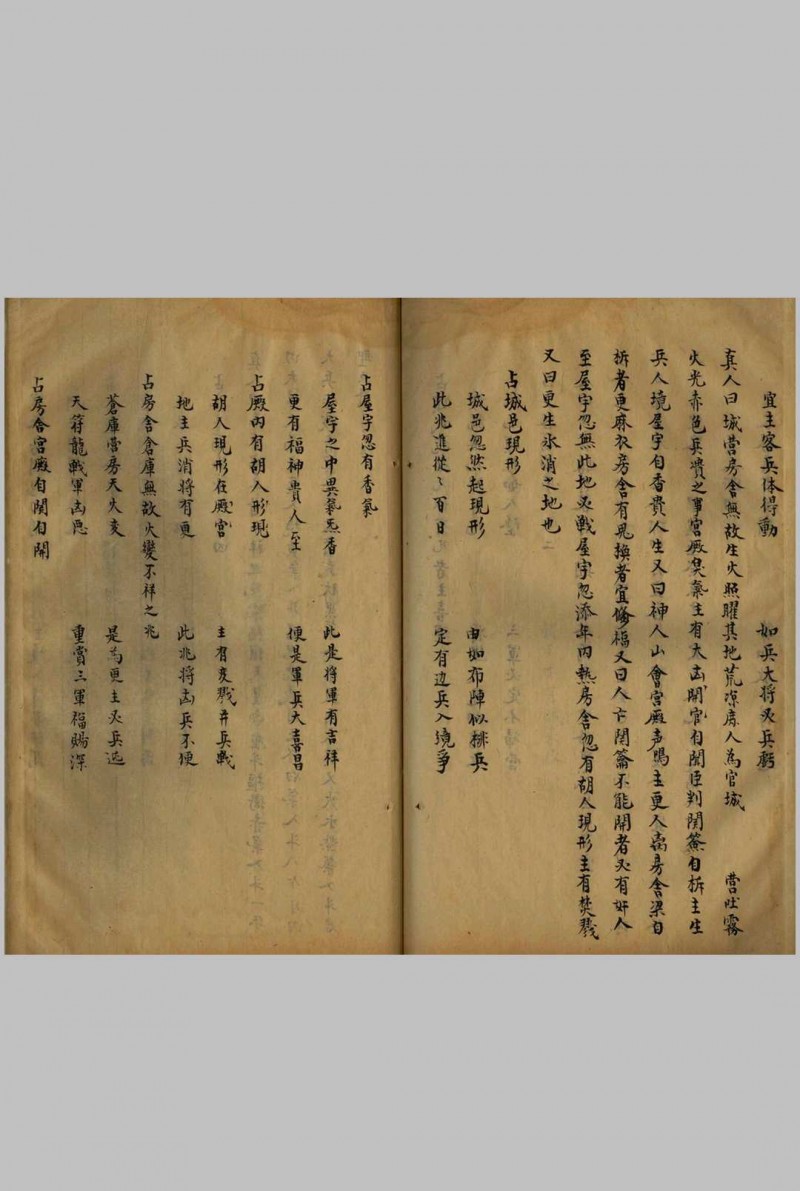 宜主客兵体得動 如兵大将必兵虧
真人曰城营房舍無故生火照曜其地荒凉庶人為官城 营吐霧
火光赤色兵潰之事宫殿臭氣主有大凶開官自閉臣判関籥自拆主生
兵人境屋宇自香貴人生又曰神人山會宫殿声鳴主更人离房舍梁自
拆者更麻衣房舍有鬼換者宜修福又曰人卞関籥不能開者必有奸人
至屋宇忽無此地必戦屋宇忽添年内熟房舍忽有胡人現形主有焚戮
又曰更生氷消之地也
占城邑現形
城邑忽然起現形 由如布陣似排兵
此兆進從〻百日 定有边兵入境爭
占屋宇忽有香氣
屋宇之中異氣炁香 此是将軍有吉祥
更有福神貴人至 便是軍兵大喜昌
占殿内有胡人形現
胡人現形在殿宫 主有友戮并兵戦
地主兵消将有更 此兆将凶兵不便
占房舍倉庫無故火變不祥之兆
蒼庫营房天火友 是為更主必兵迯
天符龍戦軍凶恶 重賞三軍福賜深
占房舍宫殿自閉自開